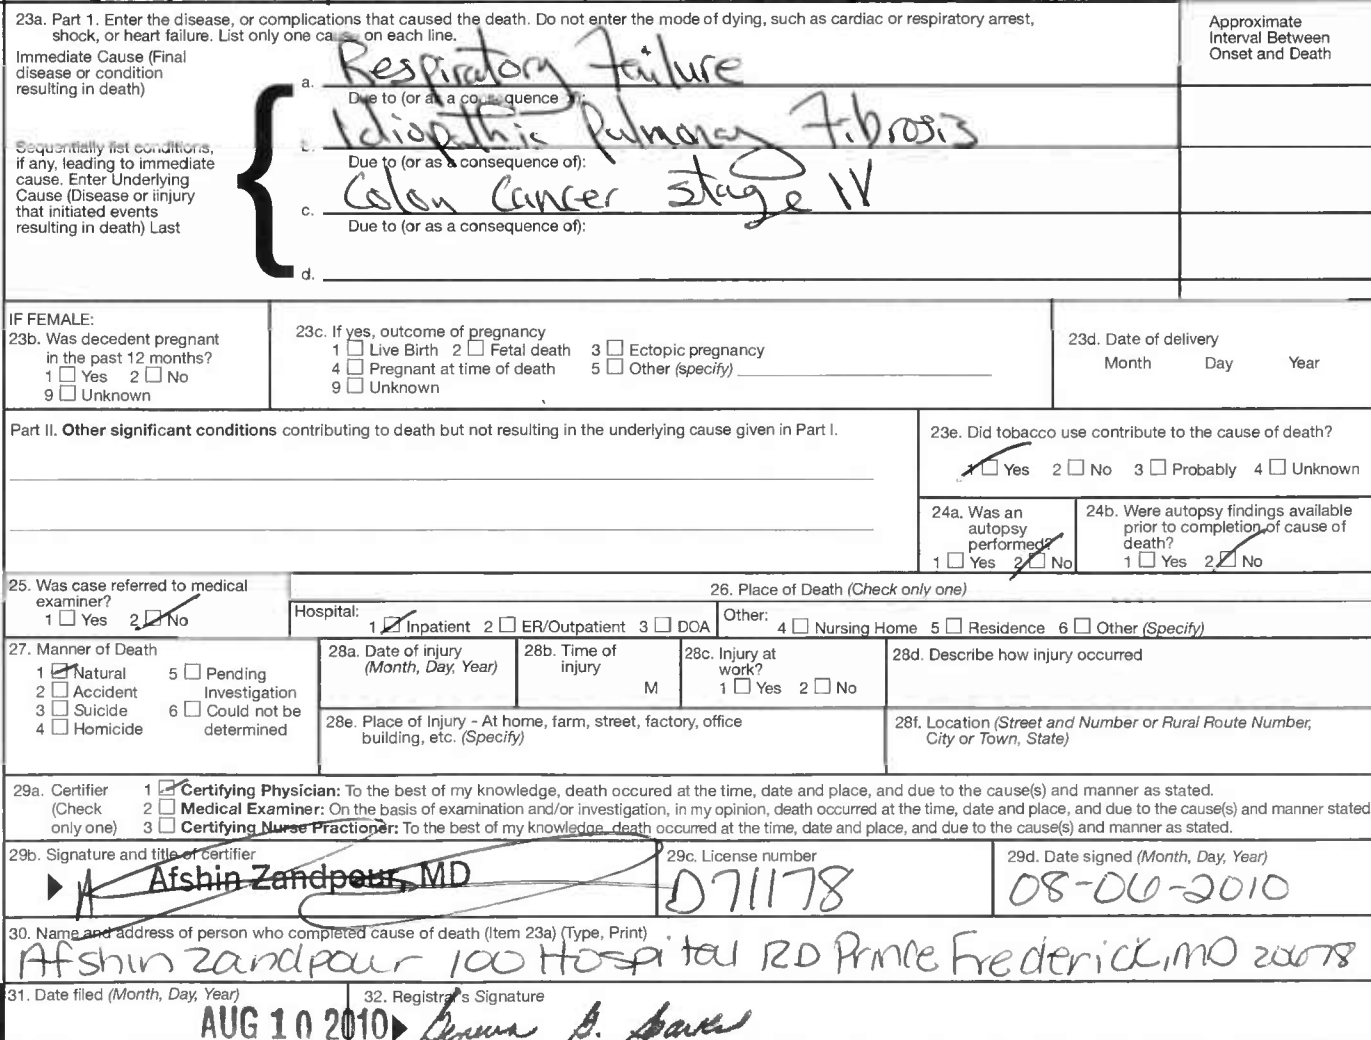 23a. Part 1. Enter the disease, or complications that caused the death. Do not enter the mode of dying, such as cardiac or respiratory arrest,
shock, or heart failure. List only one cause on each line.
Approximate
Interval Between
Onset and Death
Immediate Cause (Final
disease or condition
resulting in death)
a. Respiratory Failure
Due to (or as a consequence of):
Sequentially list conditions,
if any, leading to immediate
cause. Enter Underlying
Cause (Disease or iinjury
that initiated events
resulting in death) Last
b. Idiopathic Pulmonary Fibrosis
Due to (or as a consequence of):
c. Colon Cancer stage IV
Due to (or as a consequence of):
d.
IF FEMALE:
23b. Was decedent pregnant
in the past 12 months?
1 ☐ Yes 2 ☐ No
9 ☐ Unknown
23c. If yes, outcome of pregnancy
1 ☐ Live Birth 2 ☐ Fetal death 3 ☐ Ectopic pregnancy
4 ☐ Pregnant at time of death 5 ☐ Other (specify)
9 ☐ Unknown
23d. Date of delivery
Month Day Year
Part II. Other significant conditions contributing to death but not resulting in the underlying cause given in Part I.
23e. Did tobacco use contribute to the cause of death?
1 ☑ Yes 2 ☐ No 3 ☐ Probably 4 ☐ Unknown
24a. Was an
autopsy
performed?
1 ☐ Yes 2 ☑ No
24b. Were autopsy findings available
prior to completion of cause of
death?
1 ☐ Yes 2 ☑ No
25. Was case referred to medical
examiner?
1 ☐ Yes 2 ☑ No
26. Place of Death (Check only one)
Hospital:
1 ☑ Inpatient 2 ☐ ER/Outpatient 3 ☐ DOA
Other:
4 ☐ Nursing Home 5 ☐ Residence 6 ☐ Other (Specify)
27. Manner of Death
1 ☑ Natural 5 ☐ Pending
2 ☐ Accident Investigation
3 ☐ Suicide 6 ☐ Could not be
4 ☐ Homicide determined
28a. Date of injury
(Month, Day, Year)
28b. Time of
injury
M
28c. Injury at
work?
1 ☐ Yes 2 ☐ No
28d. Describe how injury occurred
28e. Place of Injury - At home, farm, street, factory, office
building, etc. (Specify)
28f. Location (Street and Number or Rural Route Number,
City or Town, State)
29a. Certifier
(Check
only one)
1 ☑ Certifying Physician: To the best of my knowledge, death occured at the time, date and place, and due to the cause(s) and manner as stated.
2 ☐ Medical Examiner: On the basis of examination and/or investigation, in my opinion, death occurred at the time, date and place, and due to the cause(s) and manner stated
3 ☐ Certifying Nurse Practioner: To the best of my knowledge, death occurred at the time, date and place, and due to the cause(s) and manner as stated.
29b. Signature and title of certifier
Afshin Zandpour, MD
29c. License number
D71178
29d. Date signed (Month, Day, Year)
08-06-2010
30. Name and address of person who completed cause of death (Item 23a) (Type, Print)
Afshin Zandpour 100 Hospital RD Prince Frederick, MD 20678
31. Date filed (Month, Day, Year)
AUG 10 2010
32. Registrar's Signature